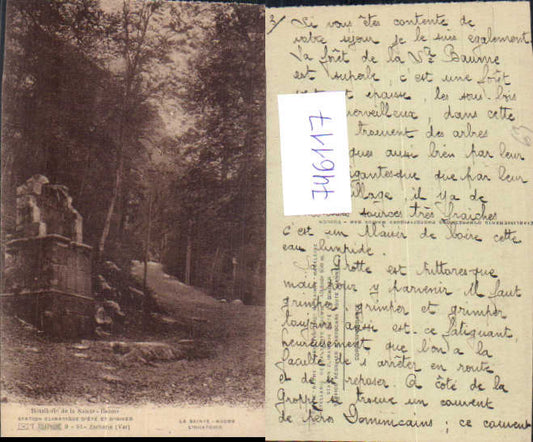 Hôtellerie de la Sainte-Baume
STATION CLIMATIQUE D'ÉTÉ ET D'HIVER
St-Zacharie (Var)
LA SAINTE-BAUME
L'ORATOIRE
3/
Si vous êtes contente de
votre séjour je le suis également
La forêt de la Ste Baume
est superbe, c'est une forêt
épaisse, les sous-bois
merveilleux, dans cette
des arbres
aussi bien par leur
que par leur
il y a de
sources très fraîches
C'est un plaisir de boire cette
eau limpide.
La Grotte est pittoresque
mais pour y parvenir il faut
grimper, grimper et grimper
toujours, aussi est-ce fatiguant,
heureusement que l'on a la
faculté de s'arrêter en route
et de se reposer. A côté de la
Grotte se trouve un couvent
de pères Dominicains, ce couvent
746117